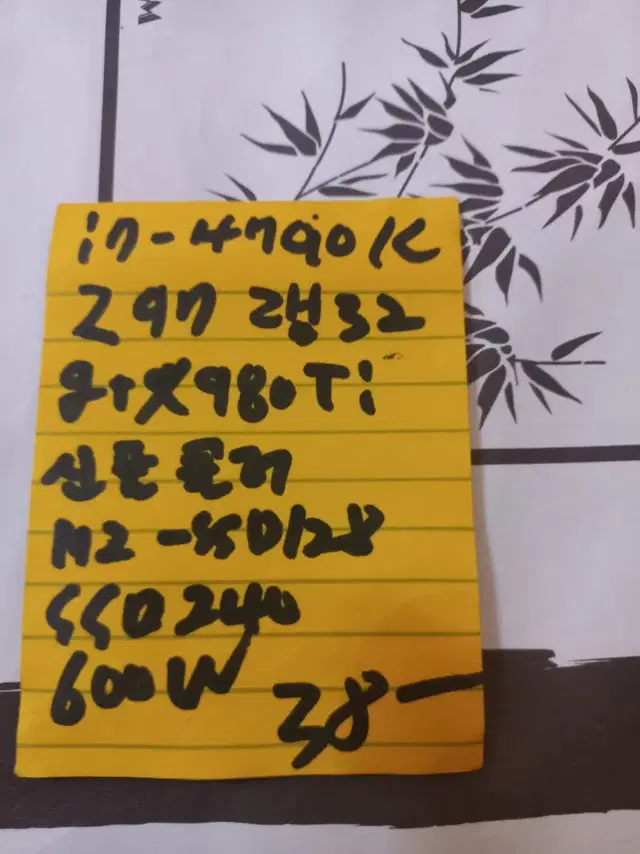 M
i7-4790K
Z97 램32
gtx980Ti
신품쿨러
M2-SSD128
SSD240
600W
38-